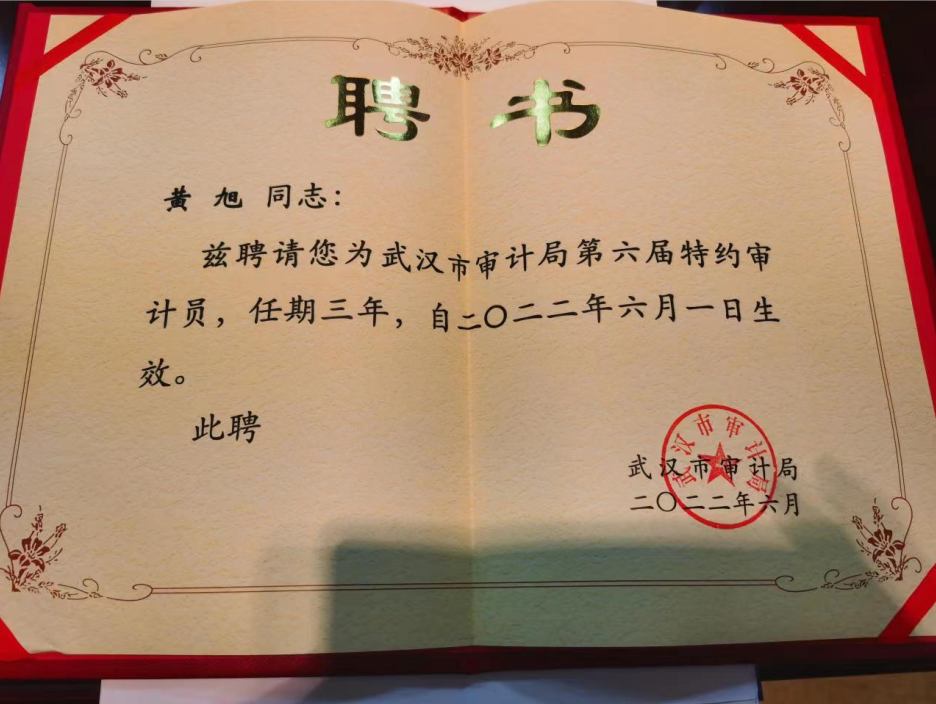 聘书
黄旭同志：
兹聘请您为武汉市审计局第六届特约审
计员，任期三年，自二〇二二年六月一日生
效。
此聘
武汉市审计局
武汉市审计局
二〇二二年六月